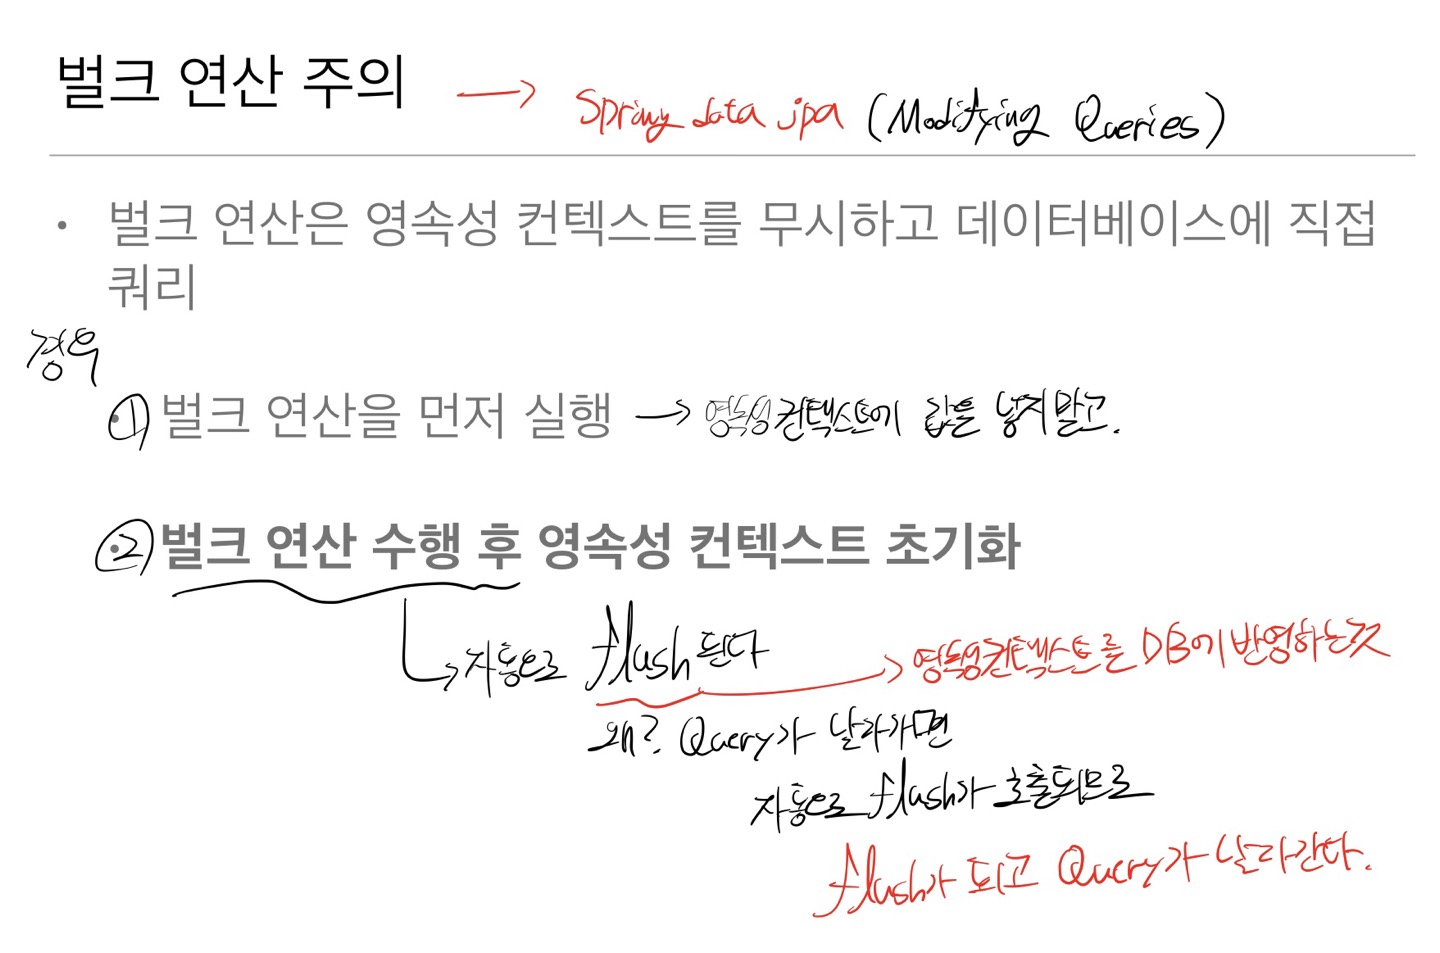 벌크 연산 주의 → Spring data jpa (Modifying Queries)
• 벌크 연산은 영속성 컨텍스트를 무시하고 데이터베이스에 직접
쿼리
경우
① 벌크 연산을 먼저 실행 → 영속성 컨텍스트에 값을 넣지말고.
② 벌크 연산 수행 후 영속성 컨텍스트 초기화
→ 자동으로 flush 된다 → 영속성컨텍스트를 DB에 반영하는것
왜? Query가 날라가면
자동으로 flush가 호출되므로
flush가 되고 Query가 날라간다.